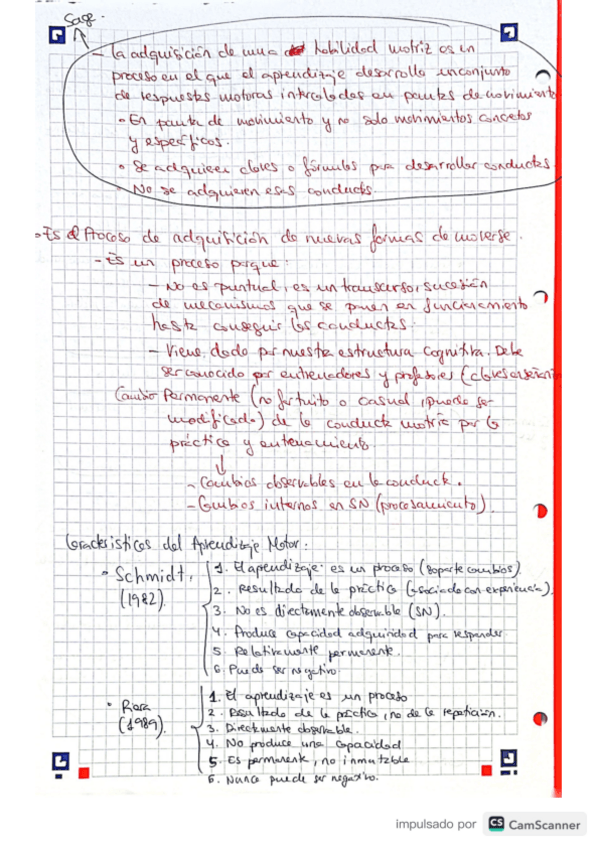 Sage.
- La adquisición de una habilidad motriz es un
proceso en el que el aprendizaje desarrolla un conjunto
de respuestas motoras intercaladas en pautas de movimiento
• En pauta de movimiento y no solo movimientos concretos
y específicos.
• Se adquieren claves o fórmulas para desarrollar conductas
- No se adquieren esas conductas.
• Es el Proceso de adquisición de nuevas formas de moverse.
- Es un proceso porque:
- No es puntual, es un transcurso, sucesión
de mecanismos que se ponen en funcionamiento
hasta conseguir las conductas.
- Viene dado por nuestra estructura cognitiva. Debe
ser conocido por entrenadores y profesores
Cambio Permanente (no fortuito o casual, puede ser
modificado) de la conducta motriz por la
práctica y entrenamiento.
↓
- Cambios observables en la conducta.
- Cambios internos en SN (procesamiento).
Características del Aprendizaje Motor:
• Schmidt,
(1982).
1. El aprendizaje es un proceso (soporte cambios)
2. Resultado de la práctica (asociado con experiencia).
3. No es directamente observable (SN).
4. Produce capacidad adquiridad para responder
5. Relativamente permanente.
6. Puede ser negativo.
• Rosa
(1989).
1. El aprendizaje es un proceso
2. Resultado de la práctica, no de la repetición.
3. Directamente observable.
4. No produce una capacidad
5. Es permanente, no inmutable
6. Nunca puede ser negativo.
impulsado por CS CamScanner